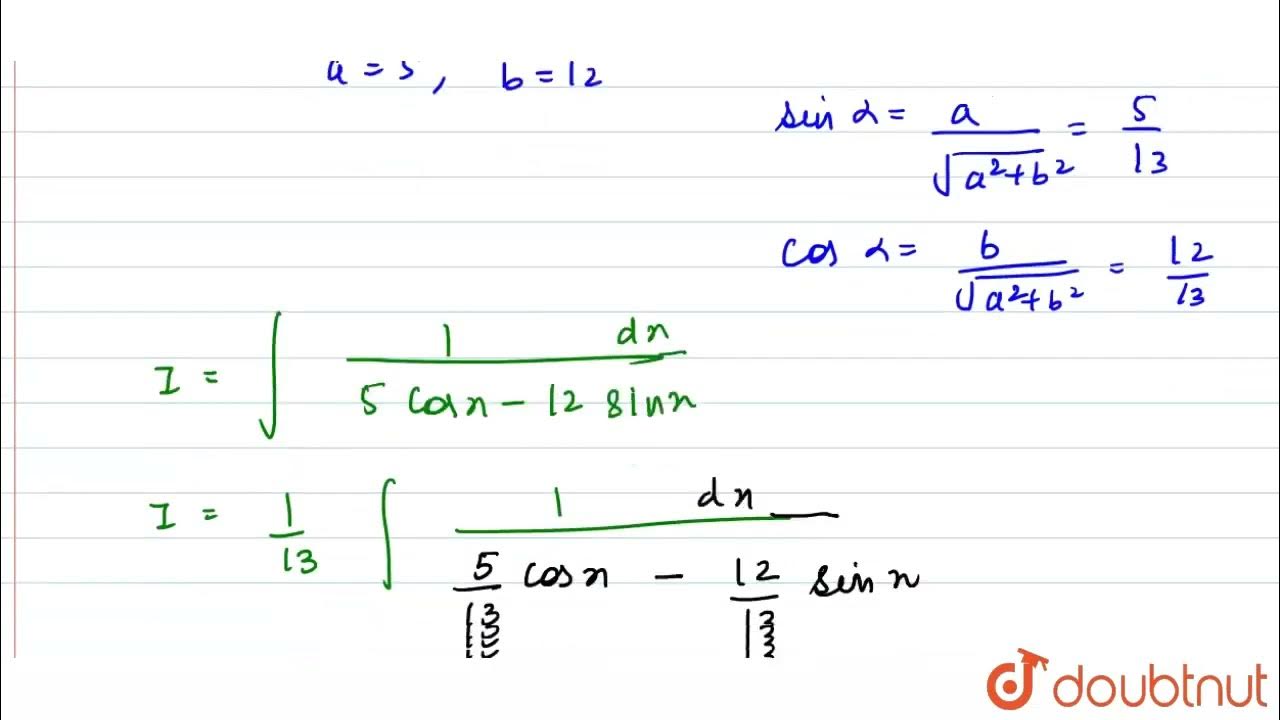 a = 5, b = 12
sin α = a / √(a² + b²) = 5 / 13
cos α = b / √(a² + b²) = 12 / 13
I = ∫ 1 dx / (5 cos x − 12 sin x)
I = 1/13 ∫ 1 dx / (5/13 cos x − 12/13 sin x)
doubtnut